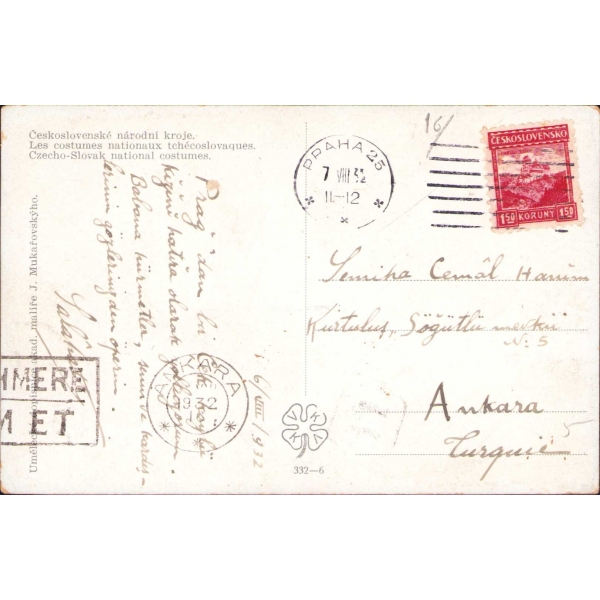 Československé národní kroje.
Les costumes nationaux tchécoslovaques.
Czecho-Slovak national costumes.
akad. malíře J. Mukařovského.
Prag' dan bir
hatıra olarak
Babana hürmetler,
gözlerinden öperim.
6/VIII/1932
HMERE
M ET
332—6
PRAHA 25
7 VIII 32
11-12
16/
ČESKOSLOVENSKO
1.50 KORUNY 1.50
Semiha Cemâl Hanım
Kurtuluş, Söğütlü mevkii
N. 5
Ankara
Turquie
5